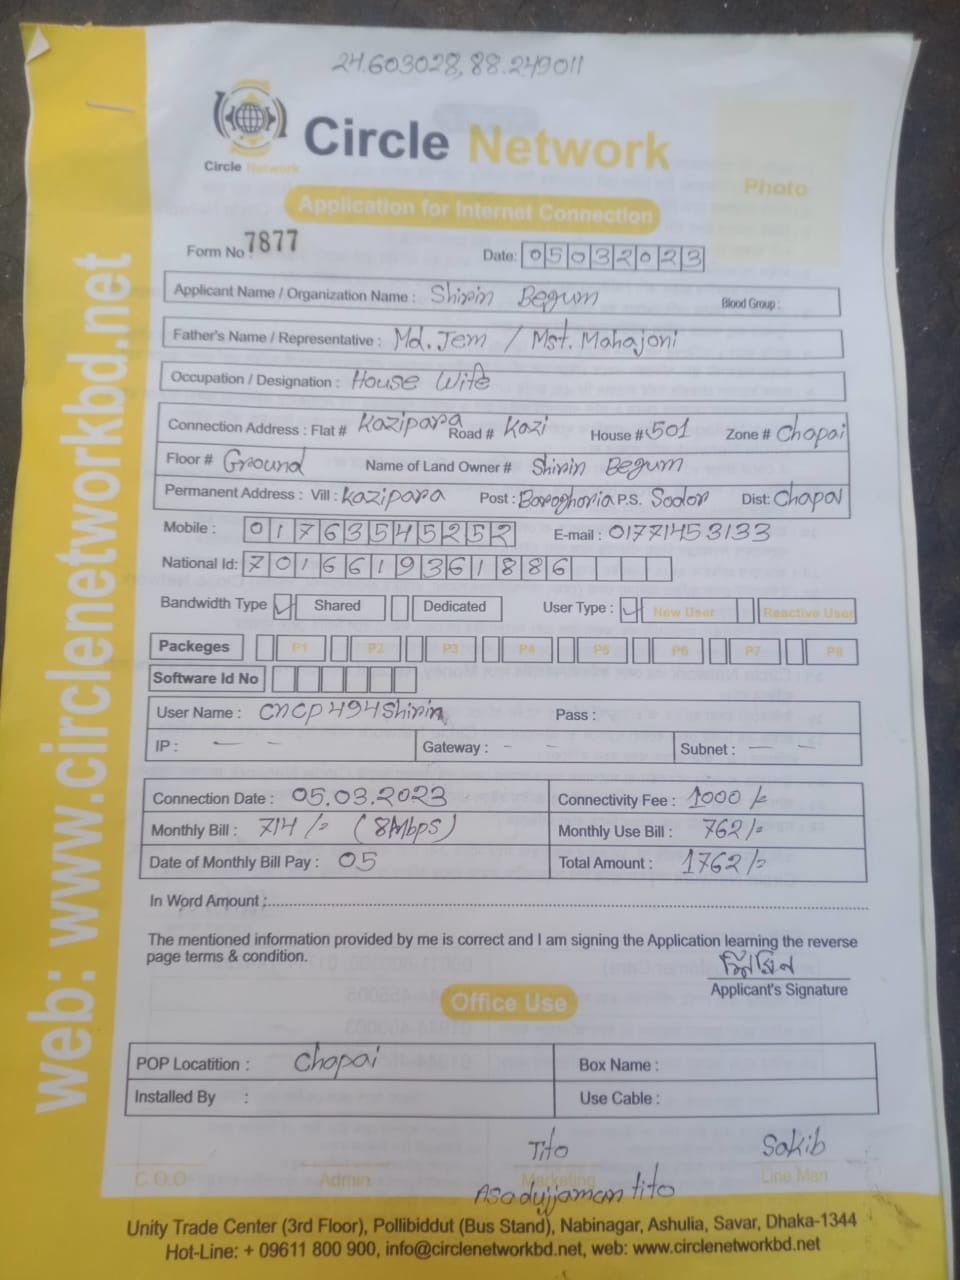 24.603028, 88.249011
Circle Network
Circle Network
Photo
Application for Internet Connection
Form No : 7877
Date: 05032023
Applicant Name / Organization Name : Shirin Begum Blood Group :
Father's Name / Representative : Md. Jem / Mst. Mahajoni
Occupation / Designation : House Wife
Connection Address : Flat # Kazipara Road # Kazi House # 501 Zone # Chopai
Floor # Ground Name of Land Owner # Shirin Begum
Permanent Address : Vill : Kazipara Post : Baroghoria P.S. Sodor Dist: Chapai
Mobile : 01763545252 E-mail : 01771453133
National Id: 7016619361886
Bandwidth Type ✓ Shared Dedicated User Type : ✓ New User Reactive User
Packeges P1 P2 P3 P4 P5 P6 P7 P8
Software Id No
User Name : CNCP494Shirin Pass :
IP : — - Gateway : - - Subnet : — -
Connection Date : 05.03.2023 Connectivity Fee : 1000/-
Monthly Bill : 714/- (8Mbps) Monthly Use Bill : 762/-
Date of Monthly Bill Pay : 05 Total Amount : 1762/-
In Word Amount :
The mentioned information provided by me is correct and I am signing the Application learning the reverse
page terms & condition.
শিরিন
Applicant's Signature
Office Use
POP Locatition : Chopai Box Name :
Installed By : Use Cable :
Tito Sakib
C.O.O Admin Marketing Line Man
Asadujjaman tito
Unity Trade Center (3rd Floor), Pollibiddut (Bus Stand), Nabinagar, Ashulia, Savar, Dhaka-1344
Hot-Line: + 09611 800 900, info@circlenetworkbd.net, web: www.circlenetworkbd.net
web: www.circlenetworkbd.net